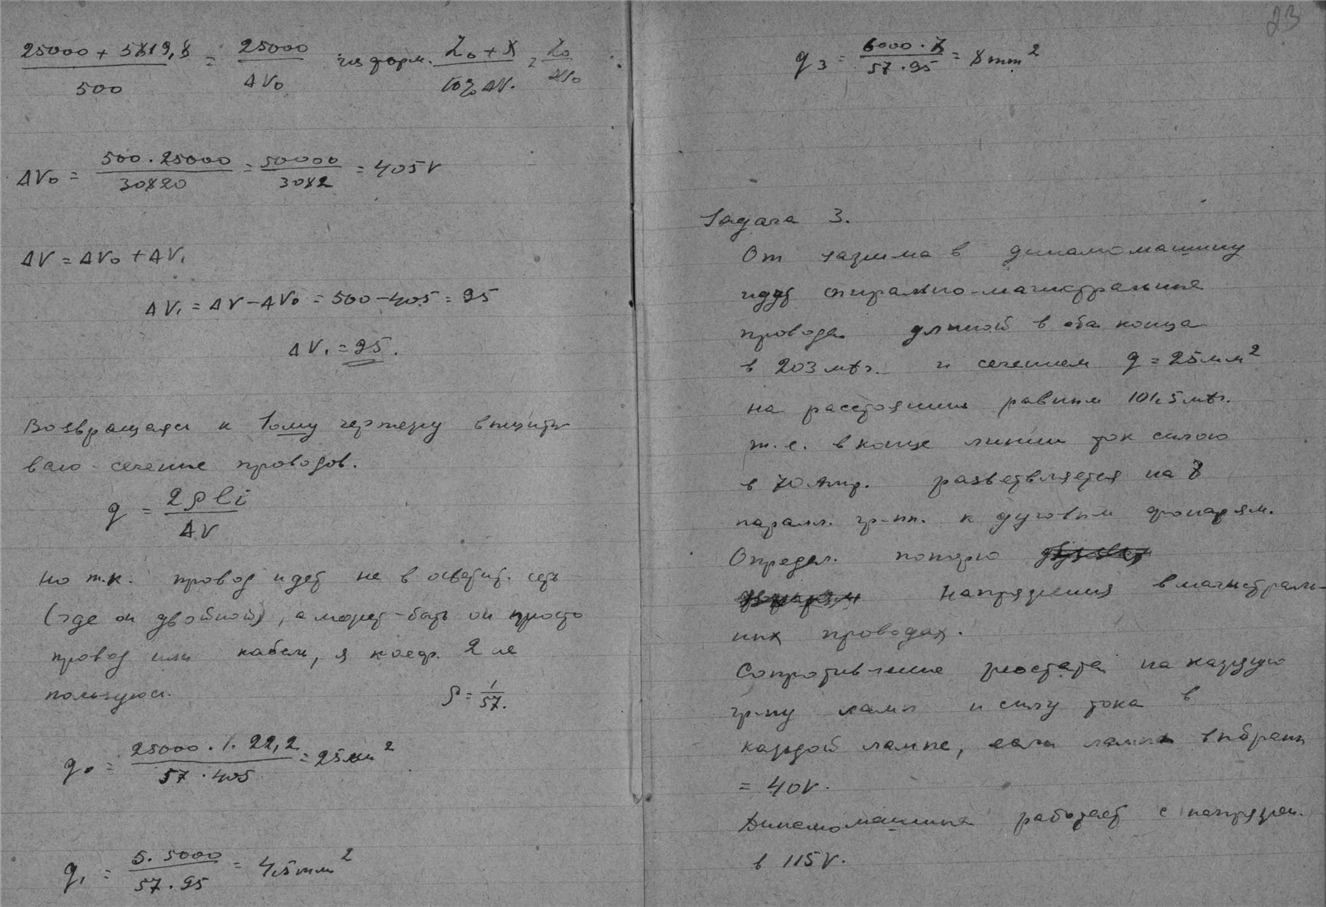 25000 + 5819,8 / 500 = 25000 / ΔV₀ из форм. Z₀ + X / 10% ΔV. = Z₀ / ΔV₀
ΔV₀ = 500 · 25000 / 30820 = 50000 / 3082 = 405 V
ΔV = ΔV₀ + ΔV₁
ΔV₁ = ΔV − ΔV₀ = 500 − 405 = 95
ΔV₁ = 95.
Возвращаясь к 1ому чертежу вычиты
ваю сечение проводов.
q = 2ρli / ΔV
но т.к. провод идет не в осветит. сеть
(где он двойной), а может-быть он просто
провод или кабель, я коеф. 2 не
пользуюсь. ρ = 1/57.
q₀ = 25000 · 1. 22,2 / 57 · 405 = 25 мм²
q₁ = 5. 5000 / 57 · 95 = 4,5 mm²
23
q₃ = 6000 · 8 / 57 · 95 = 8 mm²
Задача 3.
От зажима в динамомашину
идут спирально-магистральные
провода длиной в оба конца
в 203 mtr. и сечением q = 25 мм²
на расстоянии равным 101,5 mtr.
т.е. в конце линии ток силою
в 70 Амп. разветвляется на 7
паралл. групп. к дуговым фонарям.
Определ. потерю
напряжения в магистраль-
ных проводах.
Сопротивление реостата на каждую
групу ламп и силу тока в
каждой лампе, если лампы выбраны
= 40 V.
Динамомашина работает с напряжен.
в 115 V.